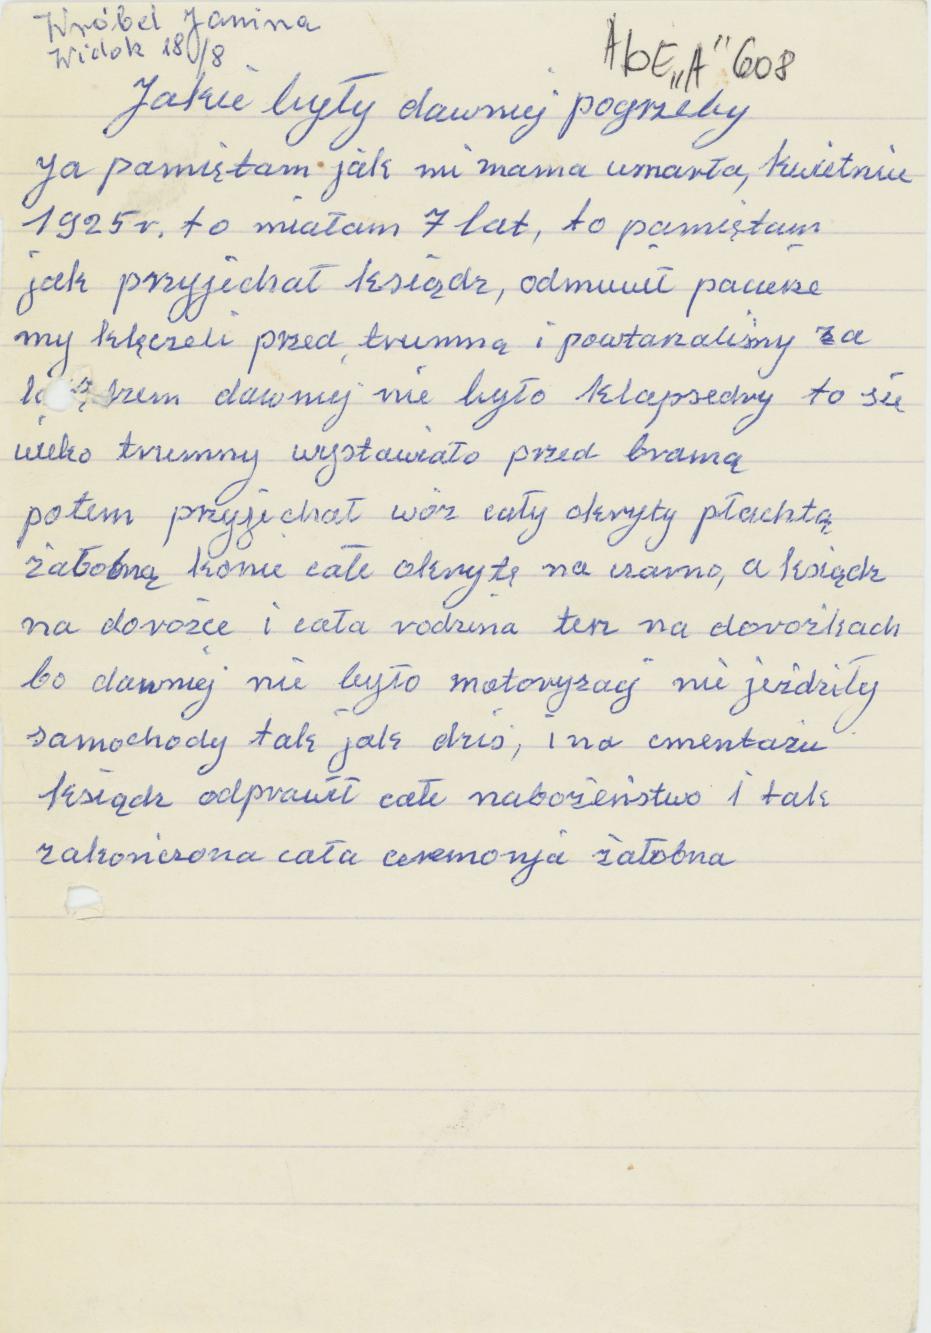 Wróbel Janina
Widok 18/8
AbE „A” 608
Jakie były dawniej pogrzeby
Ja pamiętam jak mi mama umarła, kwietniu
1925r. to miałam 7 lat, to pamiętam
jak przyjichał ksiądz, odmuwił pacierze
my klęczeli przed trumną i powtarzaliśmy za
dawniej nie było klapsedry to sie
wieko trumny wystawiało przed bramą
potem przyjichał wóz cały okryty płachtą
żałobną konie całe okrytę na czarno, a ksiądz
na dorożce i cała rodzina tesz na dorożkach
bo dawniej nie było motoryzacji nie jeździły
samochody tak jak dziś, i na cmentażu
ksiądz odprawił całe nabożeństwo i tak
zakończona cała ceremonja żałobna